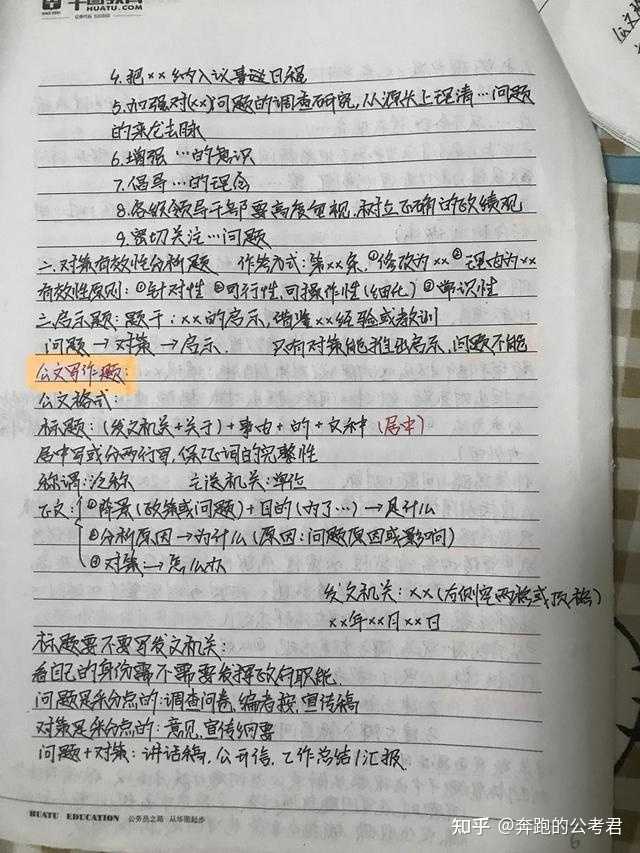 华图教育
HUATU.COM
4.把××纳入议事谈日程
5.加强对(××)问题的调查研究,从源头上理清…问题
的来龙去脉
6.增强…的意识
7.倡导…的理念
8.各级领导干部要高度重视,树立正确的政绩观
9.密切关注…问题
二.对策有效性分析题 作答方式:第××条,①修改为××②理由为××
有效性原则:①针对性 ②可行性,可操作性(细化) ③常识性
三.启示题:题干:××的启示,借鉴××经验或教训
问题→对策→启示. 只有对策能推出启示,问题不能
公文写作题:
公文格式:
标题:(发文机关+关于)+事由+的+文种(居中)
居中写或分两行写,保证词的完整性
称谓:泛称 主送机关:单位
正文:①背景(政策或问题)+目的(为了…)→是什么
②分析原因→为什么(原因:问题原因或影响)
③对策→怎么办
发文机关:××(右侧空两格或顶格)
××年××月××日
标题要不要写发文机关:
看自己的身份需不需要发挥政府职能.
问题是采分点的:调查问卷,编者按,宣传稿
对策是采分点的:意见,宣传纲要
问题+对策:讲话稿,公开信,工作总结/汇报.
HUATU EDUCATION 公务员之路 从华图起步
知乎 @奔跑的公考君